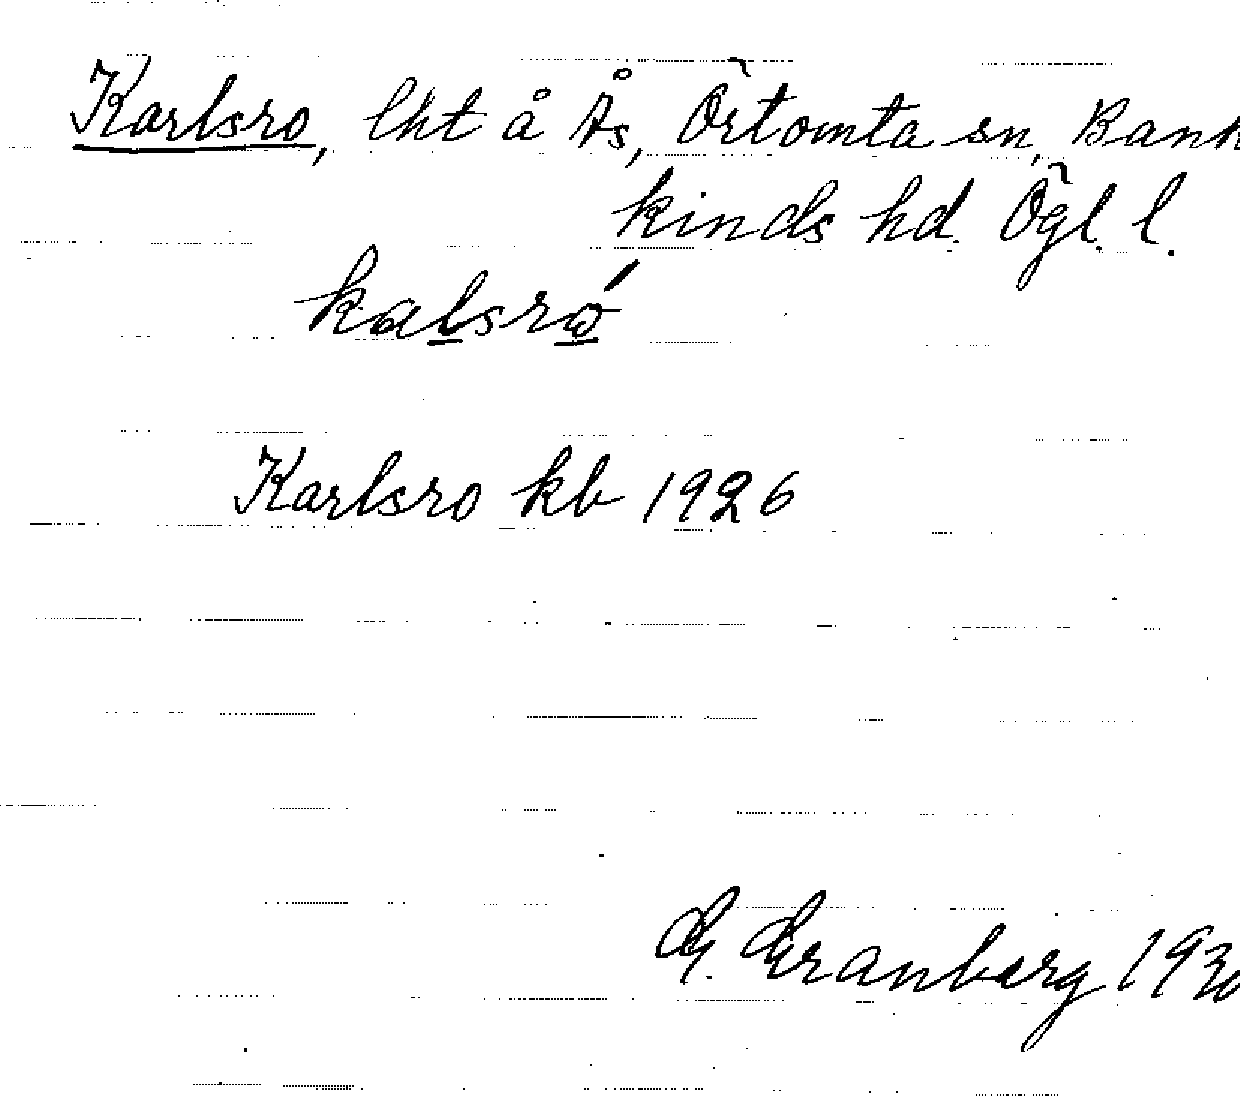 Karlsro, lht å Ås, Örtomta sn, Bank
kinds hd. Ögl. l.
kalsrώ
Karlsro kb 1926
G. Granberg 1930